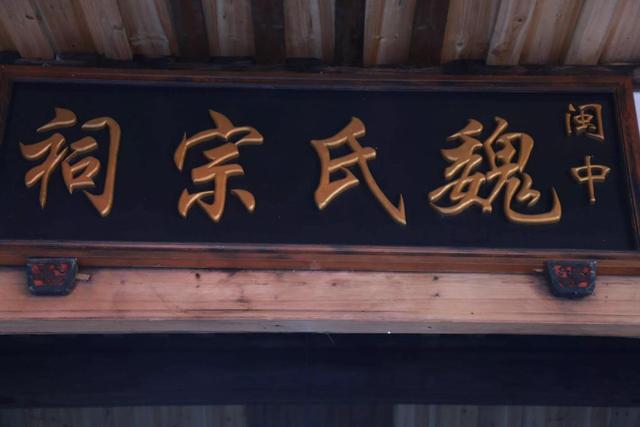 闽中
魏氏宗祠